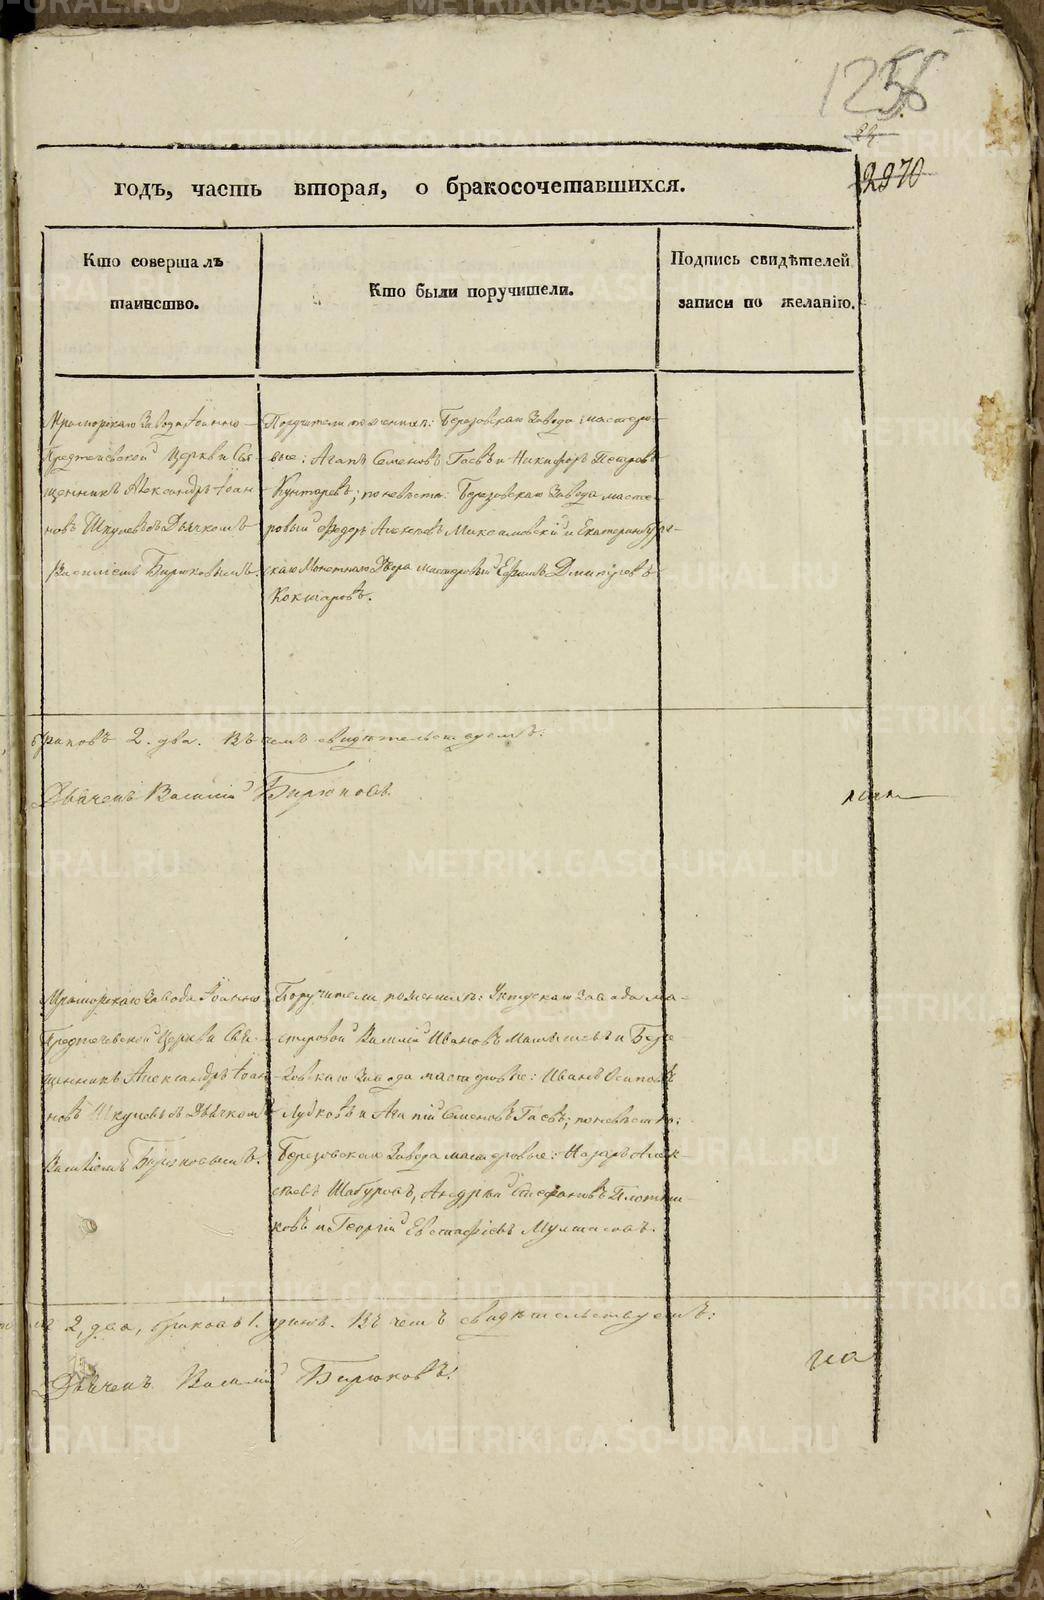 1256
22
2270
годъ, часть вторая, о бракосочетавшихся.
Кто совершалъ
таинство.
Кто были поручители.
Подпись свидѣтелей
записи по желанію.
Мраморскаго Завода Іоанно-
Предтечевской Церкви Свя-
щенникъ Александръ Іоан
новъ Шкулевъ съ Дьячкомъ
Василіемъ Бирюковымъ.
Поручители по женихѣ: Березовскаго Завода мастеро-
вые: Агапъ Семеновъ Гаевъ и Никифоръ Петровъ
по невѣстѣ: Березовскаго Завода масте-
ровый Федоръ Алексѣевъ и Екатеринбург-
скаго Монетнаго Двора мастеровый Ефимъ Дмитріевъ
Кокшаровъ.
браковъ 2. два. Въ чемъ свидѣтельствуемъ:
Дьячекъ Василій Бирюковъ.
Мраморскаго Завода Іоанно-
Предтечевской Церкви Свя-
щенникъ Александръ Іоан
новъ Шкулевъ съ Дьячкомъ
Василіемъ Бирюковымъ.
Поручители по женихѣ: Уктусскаго Завода ма-
стеровой Василій Ивановъ и Бере
зовскаго Завода мастеровые: Иванъ Осиповъ
и Агапій Семеновъ Гаевъ; по невѣстѣ:
Березовскаго Завода мастеровые: Назаръ Алек-
сѣевъ Шабуровъ, Андрей Стефановъ Плотни-
ковъ и Георгій Евстафіевъ
2, два, браковъ 1. одинъ. Въ чемъ свидѣтельствуемъ:
Дьячекъ Василій Бирюковъ.
METRIKI.GASO-URAL.RU